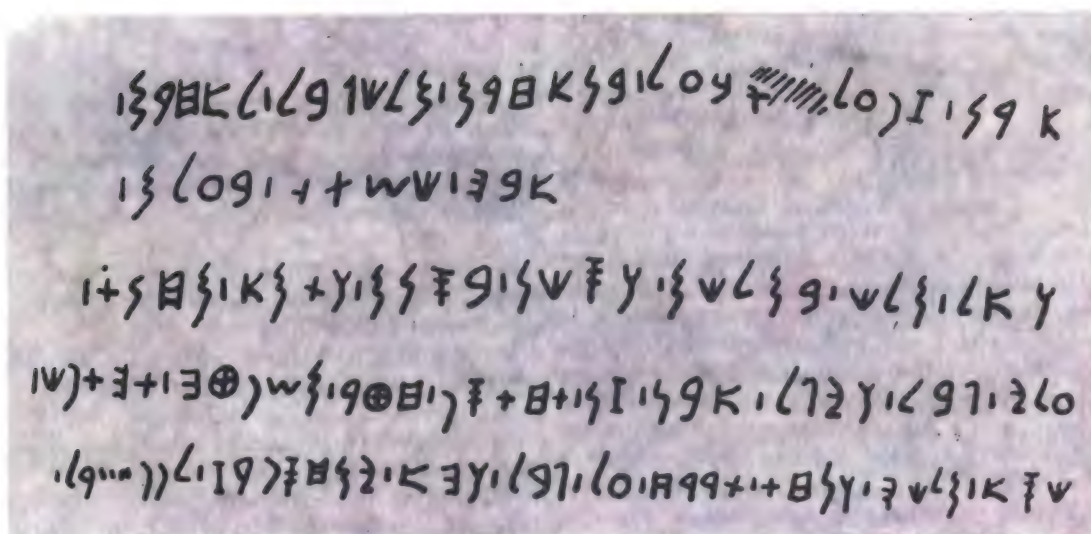 𐤀𐤓𐤍𐤟𐤆𐤐𐤏𐤋 𐤕𐤁𐤏𐤋𐤟𐤁𐤍𐤀𐤇𐤓𐤌𐤟𐤌𐤋𐤊𐤂𐤁𐤋𐤟𐤋𐤀𐤇𐤓𐤌𐤟
𐤀𐤁𐤄𐤟𐤊𐤔𐤕 𐤟𐤁𐤏𐤋𐤌𐤟
𐤅𐤀𐤋𐤟𐤌𐤋𐤊𐤟𐤁𐤌𐤋𐤊𐤌𐤟𐤅𐤎𐤊𐤍𐤟𐤁𐤎𐤍𐤌𐤟𐤅𐤕𐤌𐤀𐤟𐤌𐤇𐤍𐤕𐤟
𐤏𐤋𐤉𐤟𐤂𐤁𐤋𐤟𐤅𐤉𐤂𐤋𐤟𐤀𐤓𐤍𐤟𐤆𐤍𐤟𐤕𐤇𐤕𐤎𐤐𐤟𐤇𐤈𐤓𐤟𐤌𐤔𐤐𐤈𐤄𐤟𐤕𐤄𐤕𐤐𐤊𐤟
𐤊𐤎𐤀𐤟𐤌𐤋𐤊𐤄𐤟𐤅𐤍𐤇𐤕𐤟𐤕𐤁𐤓𐤇𐤟𐤏𐤋𐤟𐤂𐤁𐤋𐤟𐤅𐤄𐤀𐤟𐤉𐤌𐤇𐤎𐤐𐤓𐤆𐤟𐤋𐤐𐤐